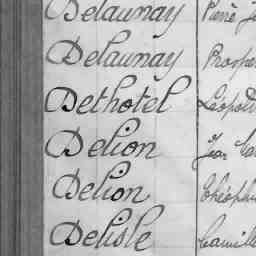 Delaunay Pierre
Delaunay Prosper
Dethotel Léopold
Delion Jean
Delion Théophile
Delisle Camille